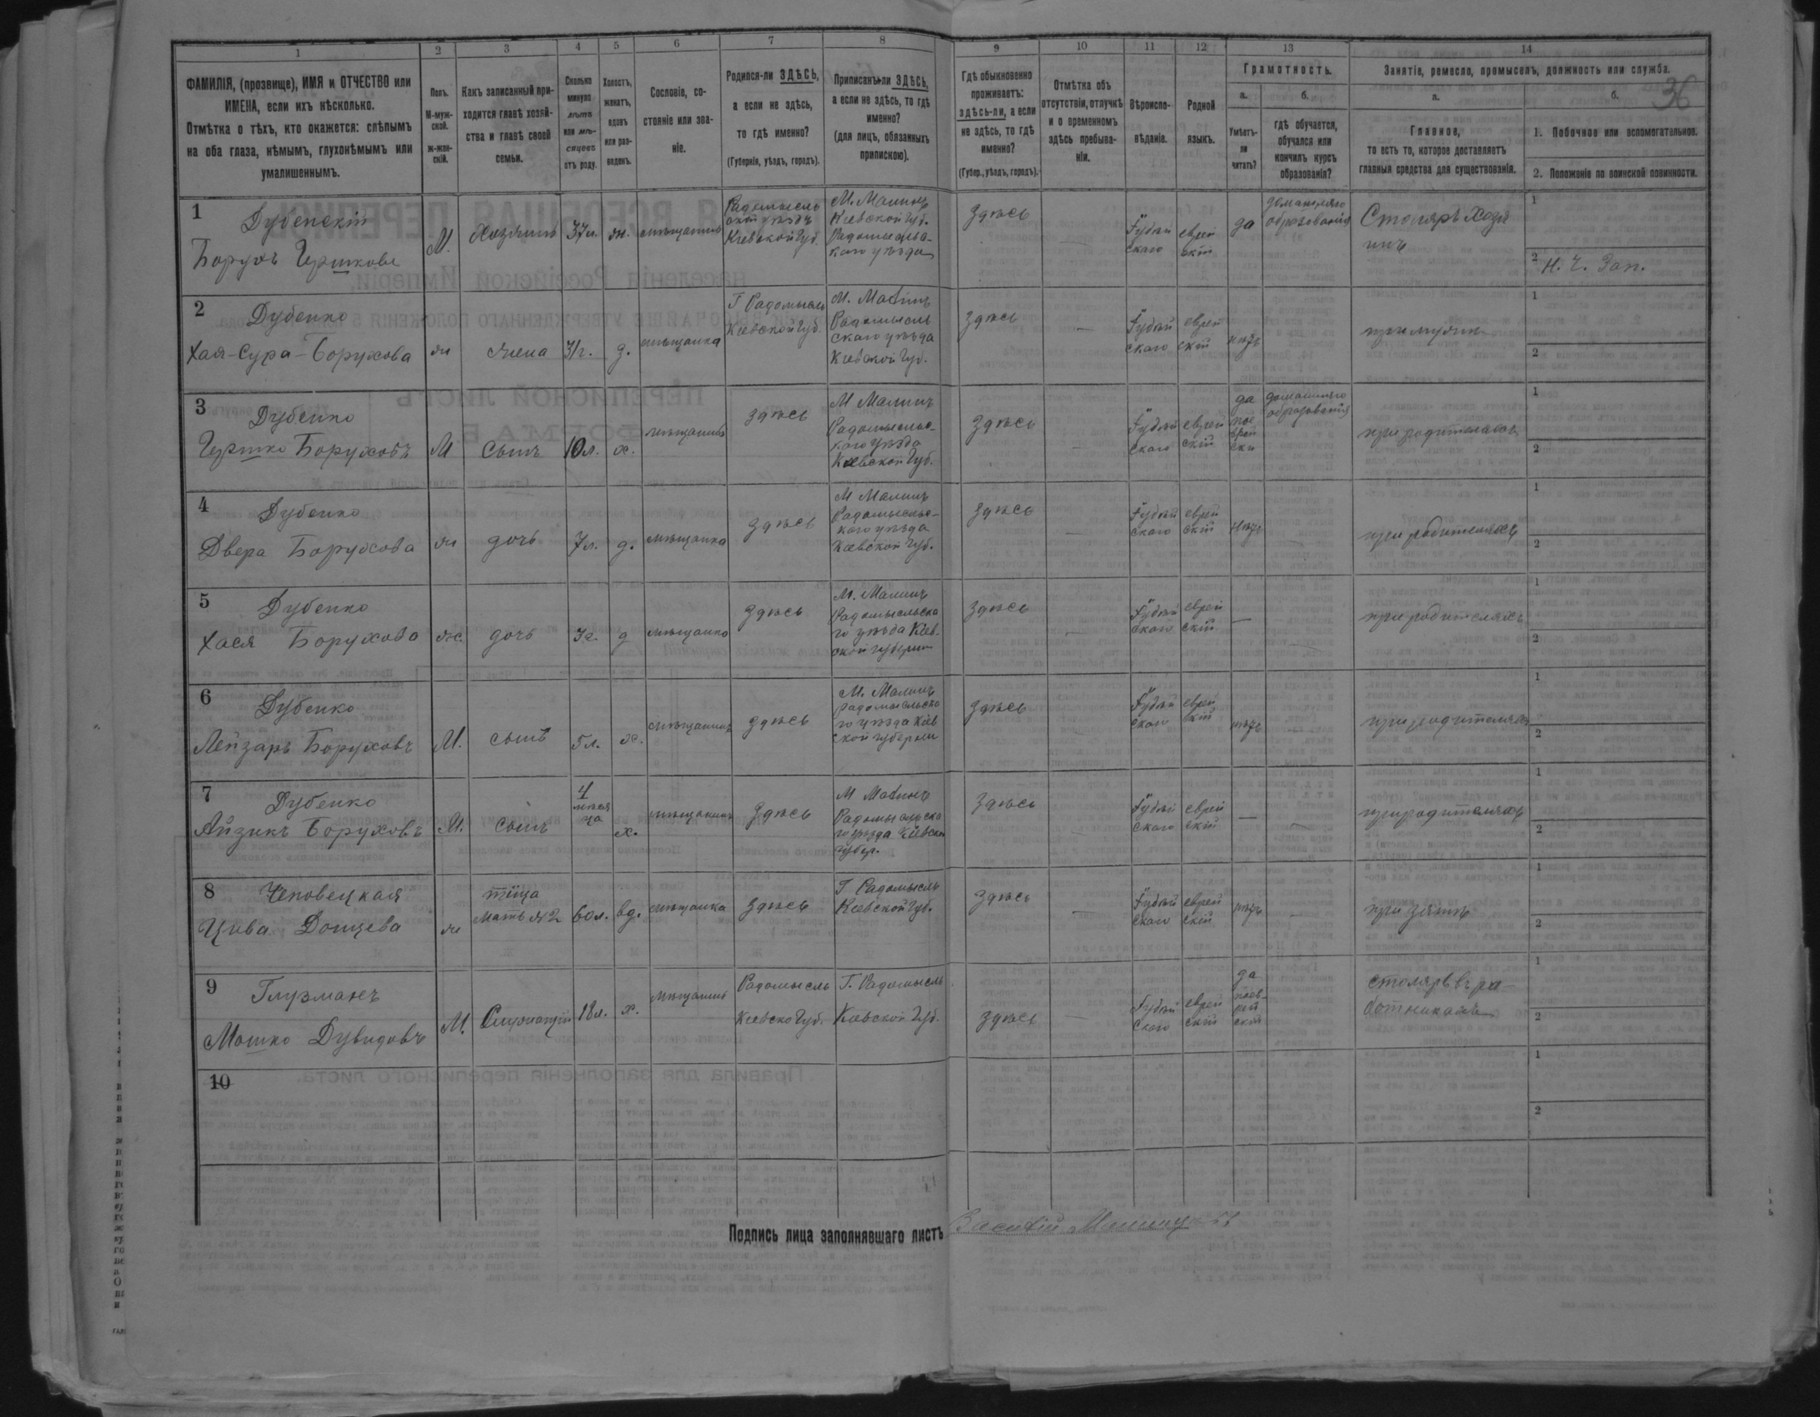 36
1 2 3 4 5 6 7 8 9 10 11 12 13 14
ФАМИЛІЯ, (прозвище), ИМЯ и ОТЧЕСТВО или
ИМЕНА, если ихъ нѣсколько.
Отмѣтка о тѣхъ, кто окажется: слѣпымъ
на оба глаза, нѣмымъ, глухонѣмымъ или
умалишеннымъ.
Полъ.
М-муж-
ской.
ж-жен-
скій.
Какъ записанный при-
ходится главѣ хозяй-
ства и главѣ своей
семьи.
Сколько
минуло
лѣтъ
или мѣ-
сяцевъ
отъ роду.
Холостъ,
женатъ,
вдовъ
или раз-
веденъ.
Сословіе, со-
стояніе или зва-
ніе.
Родился-ли ЗДѢСЬ,
а если не здѣсь,
то гдѣ именно?
(Губернія, уѣздъ, городъ).
Приписанъ-ли ЗДѢСЬ,
а если не здѣсь, то гдѣ
именно?
(для лицъ, обязанныхъ
припискою).
Гдѣ обыкновенно
проживаетъ:
здѣсь-ли, а если
не здѣсь, то гдѣ
именно?
(Губер., уѣздъ, городъ).
Отмѣтка объ
отсутствіи, отлучкѣ
и о временномъ
здѣсь пребыва-
ніи.
Вѣроиспо-
вѣданіе.
Родной
языкъ.
Грамотность.
а.
Умѣетъ-
ли
читать?
б.
гдѣ обучается,
обучался или
кончилъ курсъ
образованія?
Занятіе, ремесло, промыселъ, должность или служба.
а.
Главное,
то есть то, которое доставляетъ
главныя средства для существованія.
б.
1. Побочное или вспомогательное.
2. Положеніе по воинской повинности.
1
Дубенскій
Борухъ Гершковъ
М.
Хозяинъ
37л.
ж.
мѣщанинъ
Радомысль
скій уѣздъ
Кіевской Губ.
М. Малинъ
Кіевской Губ.
Радомысль-
скаго уѣзда
здѣсь
Іудей
скаго
еврей
скій
да
домашняго
образованія
Столяръ хозя
инъ
1
2 Н. Ч. Зап.
2
Дубенко
Хая-Сура-Борухова
ж
жена
31г.
д.
мѣщанка
Г Радомысль
Кіевской Губ.
М. Малинъ
Радомысль
скаго уѣзда
Кіевской Губ.
здѣсь
Іудей
скаго
еврей
скій
нѣтъ
при мужѣ
1
2
3
Дубенко
Гершко Боруховъ
М
сынъ
10л.
х.
мѣщанинъ
здѣсь
М Малинъ
Радомысльс-
каго уѣзда
Кіевской Губ.
здѣсь
Іудей
скаго
еврей
скій
да
по е
врей
ски
домашняго
образованія
при родителяхъ
1
2
4
Дубенко
Двера Борухова
ж
дочь
7л.
д.
мѣщанка
здѣсь
М Малинъ
Радомысльс-
каго уѣзда
Кіевской Губ.
здѣсь
Іудей
скаго
еврей
скій
нѣтъ
при родителяхъ
1
2
5
Дубенко
Хася Борухова
ж.
дочь
д
мѣщанка
здѣсь
М. Малинъ
Радомысльска
го уѣзда Кіев.
ской губерніи
здѣсь
Іудей
скаго
еврей
скій
при родителяхъ
1
2
6
Дубенко
Лейзаръ Боруховъ
М.
сынъ
5л.
х.
мѣщанинъ
здѣсь
М. Малинъ
Радомысльска
го уѣзда Кіев
ской губерніи
здѣсь
Іудей
скаго
еврей
скій
нѣтъ
при родителяхъ
1
2
7
Дубенко
Айзикъ Боруховъ
М.
сынъ
4
мѣсяца
х.
мѣщанинъ
здѣсь
М Малинъ
Радомысльска
го уѣзда Кіевской
губер.
здѣсь
Іудей
скаго
еврей
скій
при родителяхъ
1
2
8
Чеповецкая
Цива Донцева
ж
тёща
мать №2
60л.
вд.
мѣщанка
здѣсь
Г Радомысль
Кіевской Губ.
здѣсь
Іудей
скаго
еврей
скій
нѣтъ
при зятѣ
1
2
9
Глузманъ
Мошко Дувидовъ
М.
Служащій
18л.
х.
мѣщанинъ
Радомысль
Кіевско Губ.
Г. Радомысль
Кіевской Губ.
здѣсь
Іудей
скаго
еврей
скій
да
по ев-
рей
ски
столяръ въ ра
ботникахъ
1
2
10
1
2
Подпись лица заполнявшаго листъ
Василій